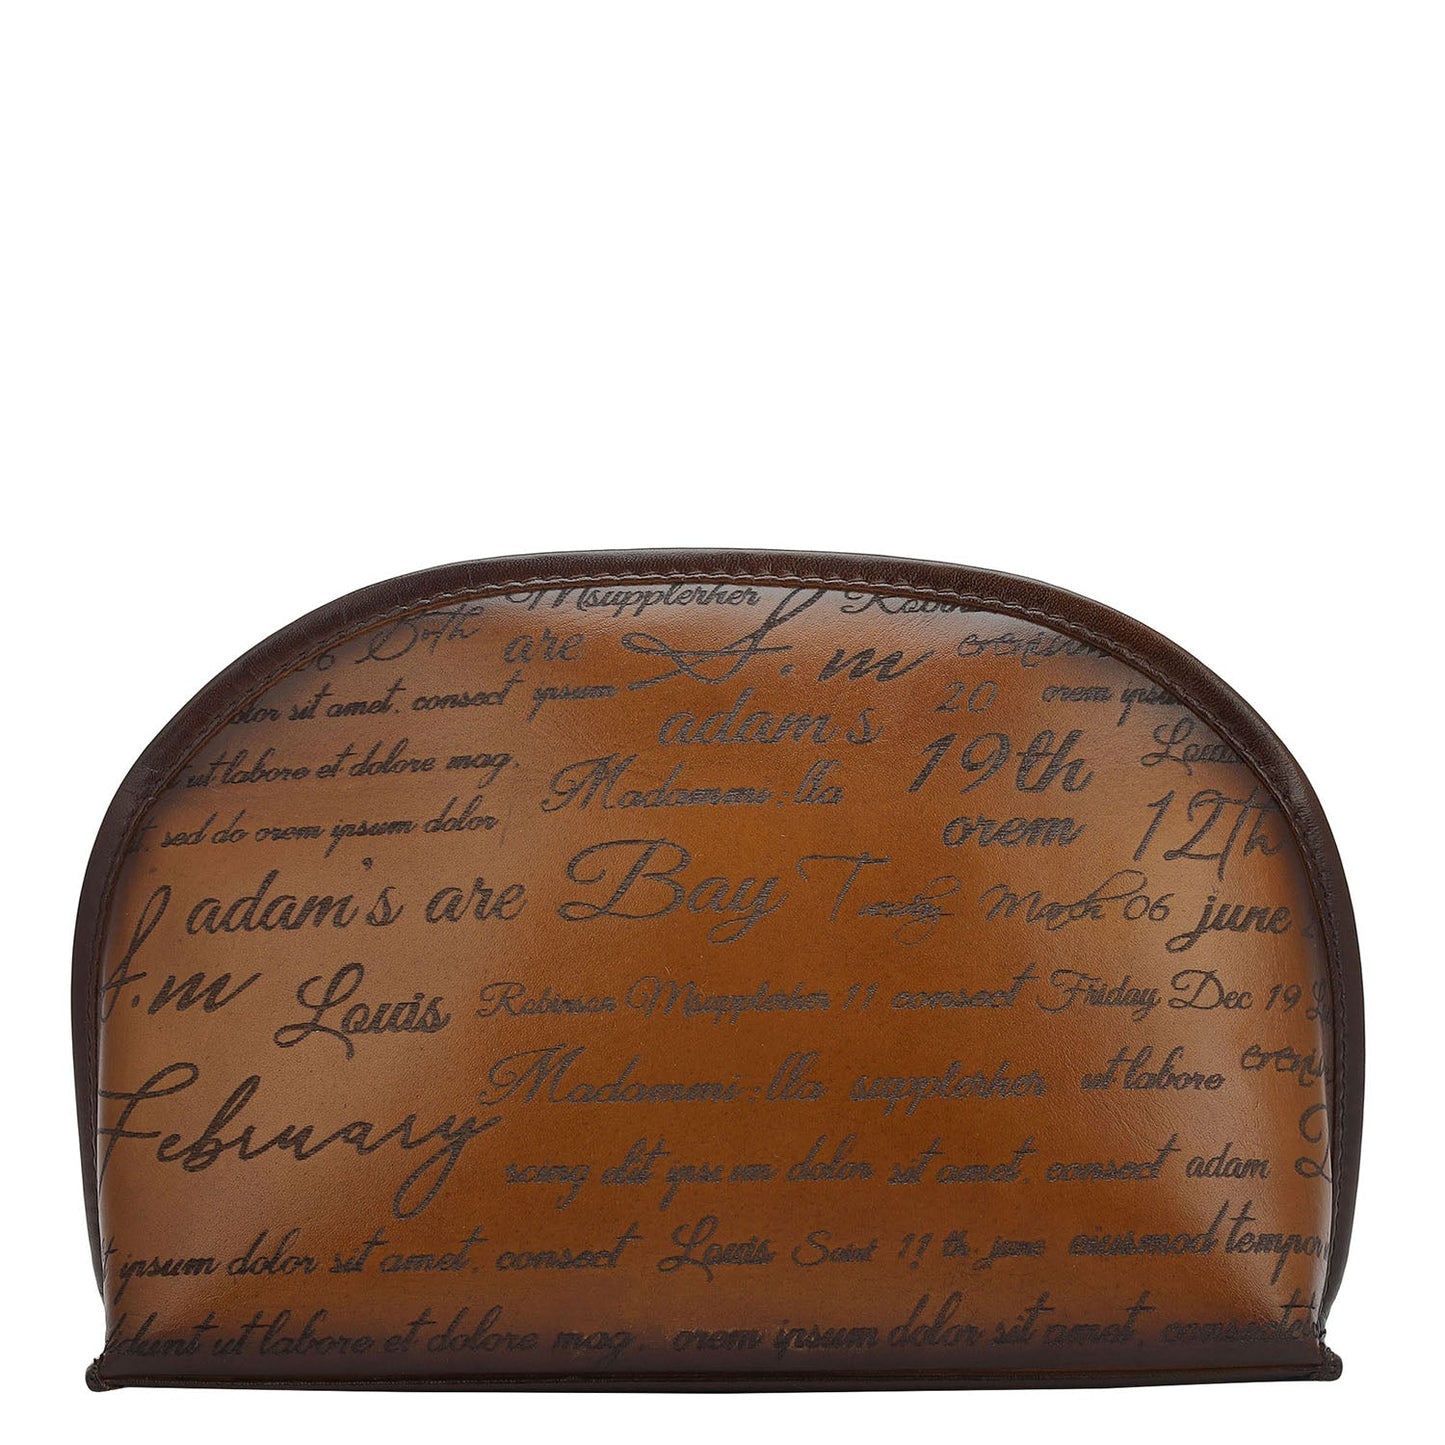 Msupplerher
are S.m
olor sit amet, consect ipsum
20 orem ipsu
adam's
Louis
ut labore et dolore mag,
Madammi:lla 19th
sed do orem ipsum dolor
orem 12th
adam's are Bay
March 06 june
S.m Louis Robinson Msupplerher 11 consect Friday Dec 19
Madammi:lla supplerher ut labore
February
scing elit ipsum dolor sit amet, consect adam
ipsum dolor sit amet, consect Louis 11 th june eiusmod tempor
didunt ut labore et dolore mag, orem ipsum dolor sit amet, consectet